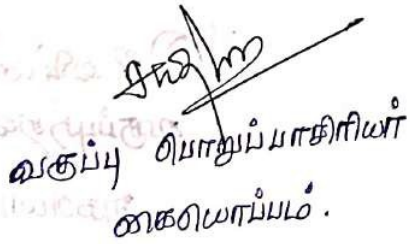 வகுப்பு பொறுப்பாசிரியர்
கையொப்பம்.